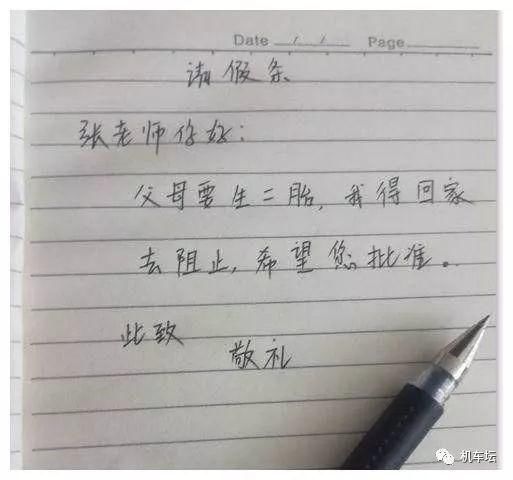 Date / / Page
请假条
张老师你好：
父母要生二胎，我得回家
去阻止，希望您批准。
此致
敬礼
机车坛